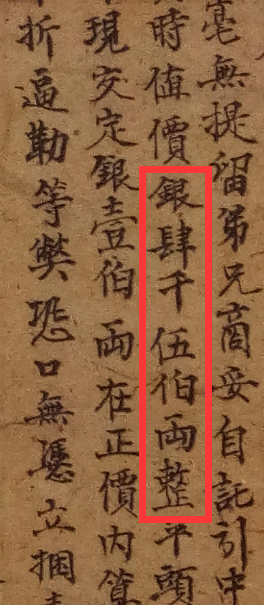 毫無提留弟兄商妥自託引中
時值價銀肆千伍伯両整平頭
現交定銀壹伯両在正價内算
折逼勒等弊恐口無憑立捆